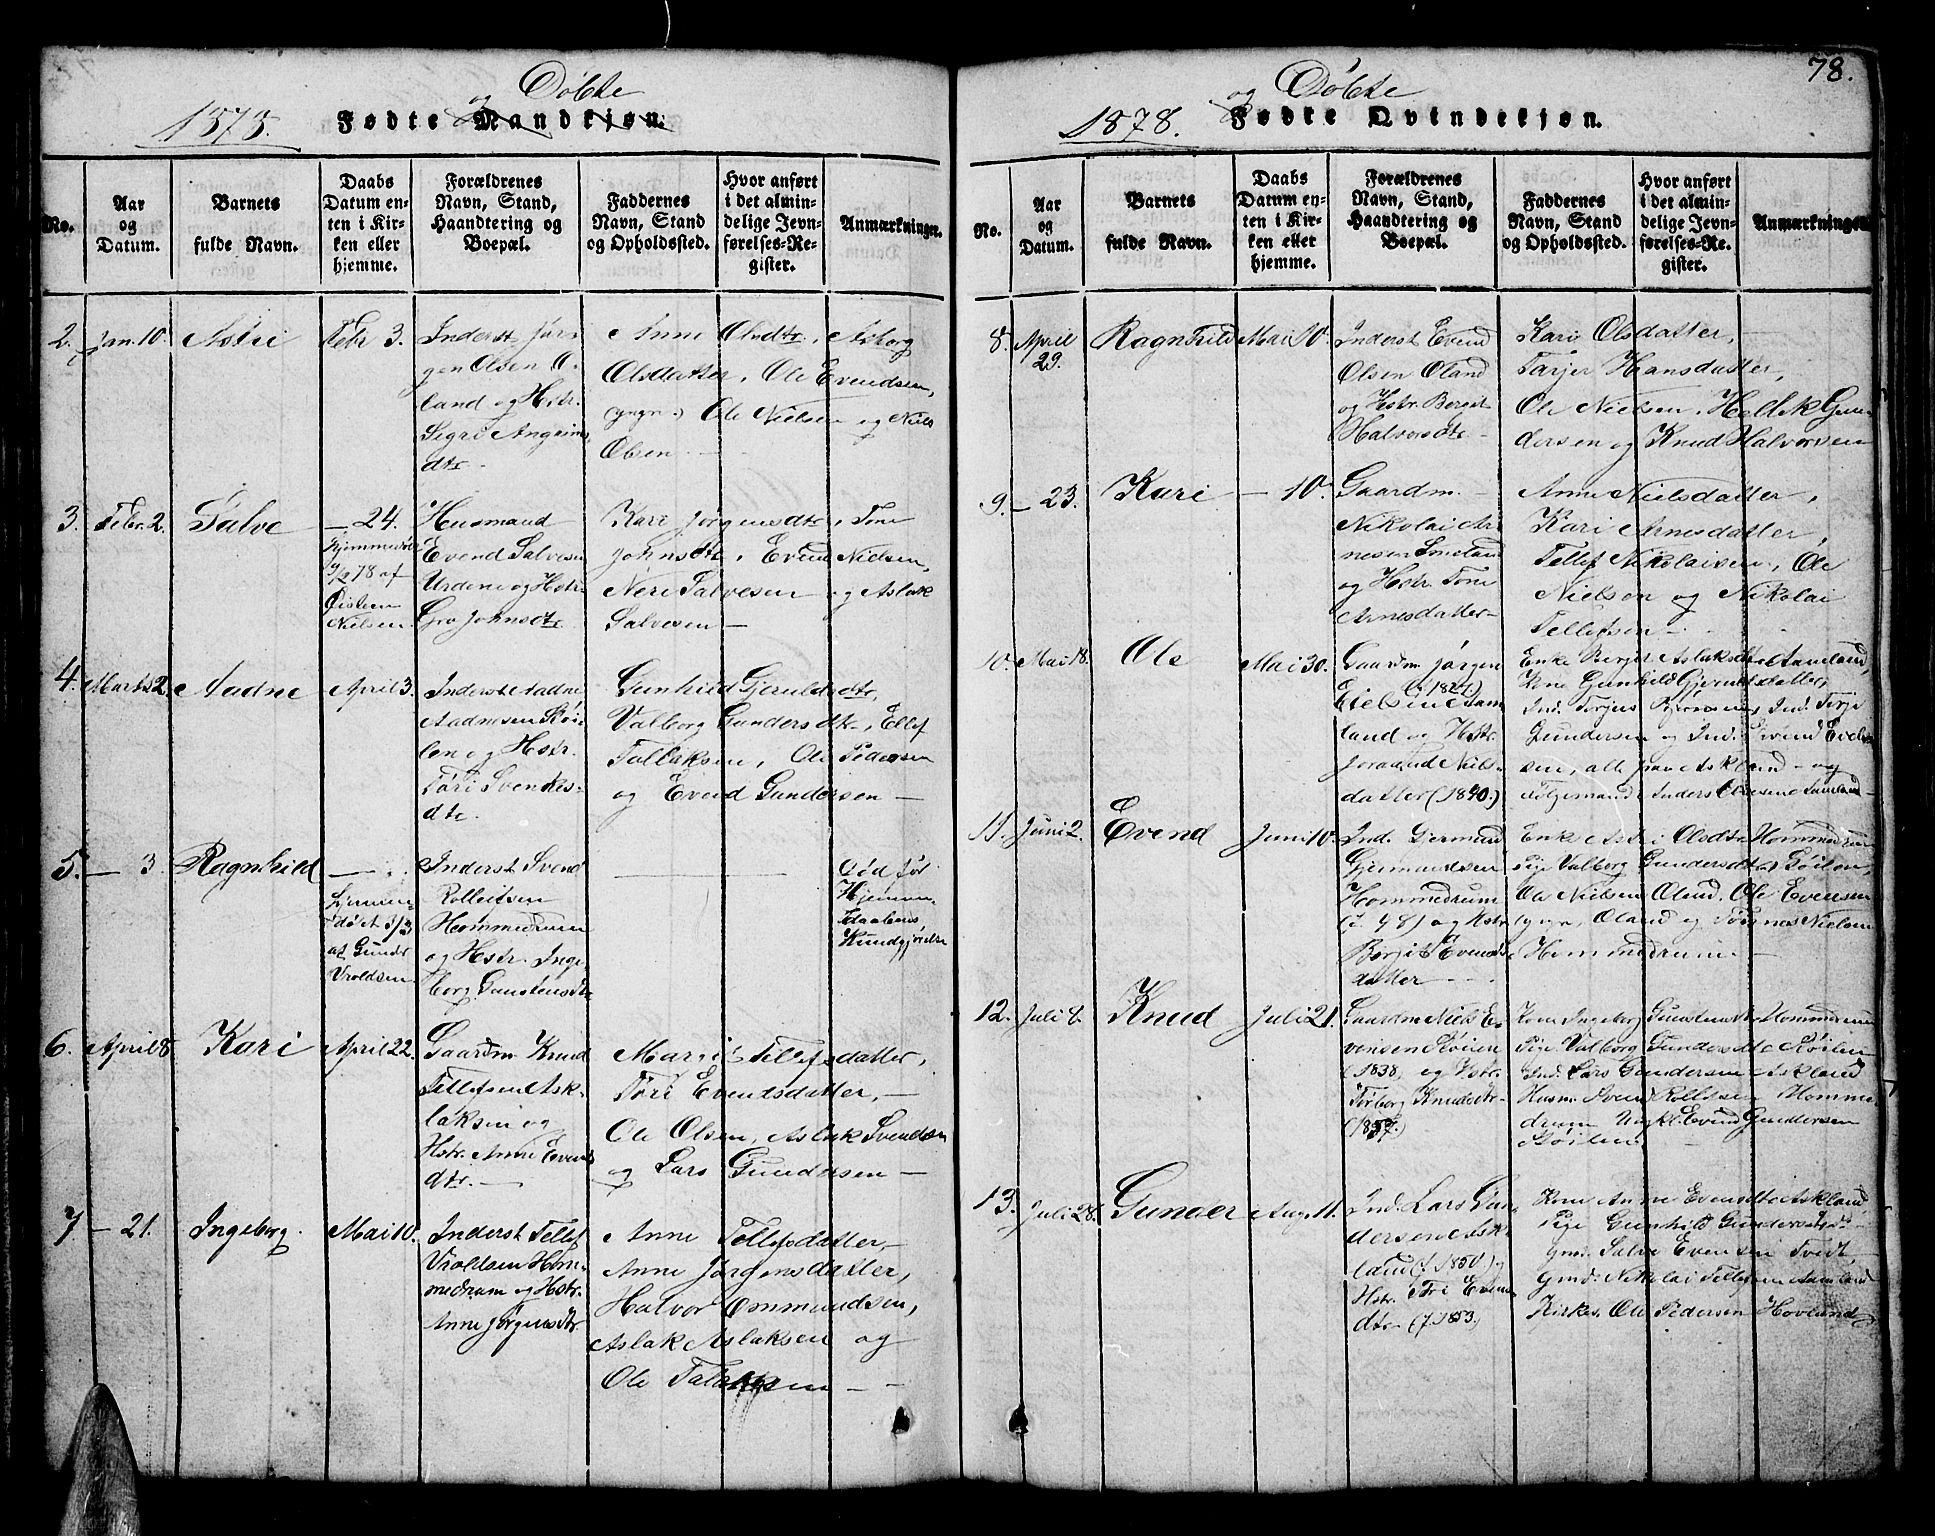 78.
og Døbte
1878. Fødte Mandkjøn.
No.
Aar og Datum.
Barnets fulde Navn.
Daabs Datum enten i Kirken eller hjemme.
Forældrenes Navn, Stand, Haandtering og Boepæl.
Faddernes Navn, Stand og Opholdssted.
Hvor anført i det almindelige Jevnførelses-Register.
Anmærkninger.
2. Jan. 10. Astri Febr 3.
Inderst Jørgen
Olsen Oland og Hstr.
Segri
dtr.
Anne Olsdtr., Asborg
Olsdatter, Ole Evendsen,
yngr.) Ole Nielsen og Niels
Olsen.
3. Febr. 2. Salve — 24.
Hjemmedøbt
9/2 78 af
Øistein
Nielsen
Husmand
Evend Salvesen
Urdene og Hstr.
Gro Johnsdtr.
Kari Jørgensdtr, Tone
Johnsdtr, Evend Nielsen,
Neri Salvesen og Aslak
Salvesen —
4. Marts 2. Aadne April 3.
Inderst Aadne
Aadnesen Støilen
og Hstr.
Tøri Svenkesdtr.
Gunhild Gjeruldsdtr,
Valborg Gundersdtr, Ellef
Tallaksen, Ole Pedersen
og Evend Gundersen —
5. — 3. Ragnhild —
Hjemmedøbt 3/3
af Gunder
Vroldsen
Inderst Svend
Rolleifsen
Hommedrum
og Hstr. Ingeborg
Gunstensdtr
Død før
Hjemmedaabens
Kundgjørelse
6. April 8. Kari April 22.
Gaardm. Knud
Tellefsen Asklaksen
og
Hstr. Anne Evendsdtr. —
Margit Tellefsdatter,
Tøri Evendsdatter, —
Ole Olsen, Aslak Svendsen
og Lars Gundersen —
7 — 21. Ingeborg. Mai 10.
Inderst Tellef
Vroldsen Hommedrum
og Hstr.
Anne Jørgensdtr.
Anne Tellefsdatter, —
Anne Jørgensdatter,
Halvor Ommundsen,
Aslak Aslaksen og
Ole Talaksen — -
og Døbte
1878. Fødte Qvindekjøn.
No.
Aar og Datum.
Barnets fulde Navn.
Daabs Datum enten i Kirken eller hjemme.
Forældrenes Navn, Stand, Haandtering og Boepæl.
Faddernes Navn, Stand og Opholdssted.
Hvor anført i det almindelige Jevnførelses-Register.
Anmærkninger
8. April 29. Ragnhild Mai 10.
Inderst Evend
Olsen Oland
og Hstr. Bergit
Halvorsdtr —
Kari Olsdatter, —
Tarjer Hansdatter,
Ole Nielsen, Hellek Gundersen
og Knud Halvorsen
9. — 23. Kari — 10.
Gaardm. —
Nikolai Arnesen
Smeland
og Hstr. Tone
Arnesdatter —
Anne Nielsdatter,
Kari Arnesdatter,
Tellef Nikolaisen, Ole
Nielsen og Nikolai
Tellefsen —
10. Mai 18. Ole Mai 30.
Gaardm Jørgen
Eielsen Aamland
og Hstr.
Joraand Nielsdatter
(1840.)
Enke Berjit Aslaksdtr Aamland,
Kone Gunhild Gjeruldsdatter,
Ind. Terjus Bjørnsen, Ind. Terje
Gundersen og Ind. Evend Evensen,
alle fra Askland — og
11. Juni 2. Evend Juni 10.
Ind. Gjermund
Gjermundsen
Hommedrum
(f. 48) og Hstr
Berjit Evendsdatter
- -
Enke Astri Olsdtr Hommedrum
Pige Valborg Gundersdtr Støilen,
Ole Nielsen Oland, Ole Evensen
yngr, Oland og Nielsen
Hommedrum. —
12. Juli 8. Knud Juli 21.
Gaardm Niels Evensen
Støilen
(1838) og Hstr.
Torborg Knudsdtr —
(1837.)
Kone Ingeborg Gunstensdtr Hommedrum
Pige Valborg Gundersdtr Støilen
Ind. Lars Gundersen Askland
Husm. Svend Rolleifsen Hommedrum
Ungkl. Evend Gundersen
Støilen
13. Juli 28. Gunder Aug. 11.
Ind. Lars Gundersen
Askland
(f. 1850.) og
Hstr. Tøri Evensdtr
— (f. 1853.)
Kone Anne Evensdtr Askland
Pige Gunhild Gundersdtr —
Gmd. Salve Evensen Tveit,
Gmd. Nikolai Tellefsen Aamland
Kirkes. Ole Pedersen Hovland